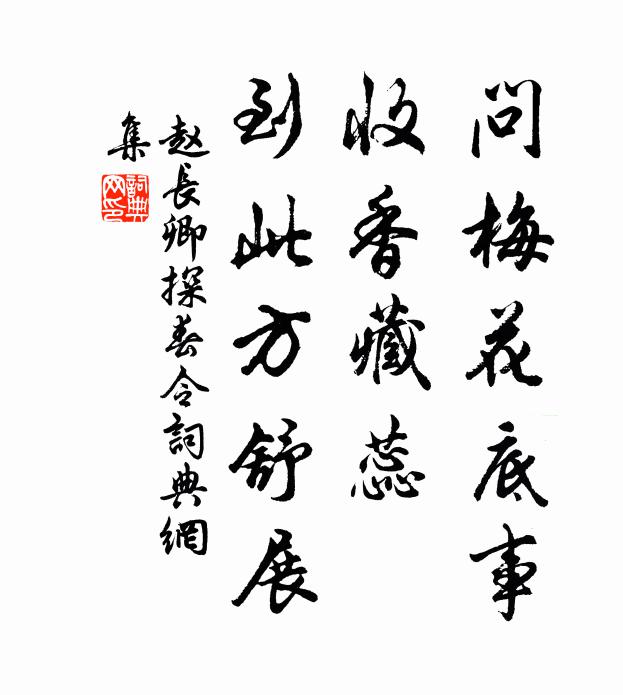 問梅花底事
收香藏蕊
到此方舒展
赵長卿探春令詞典網
集
詞典
网印